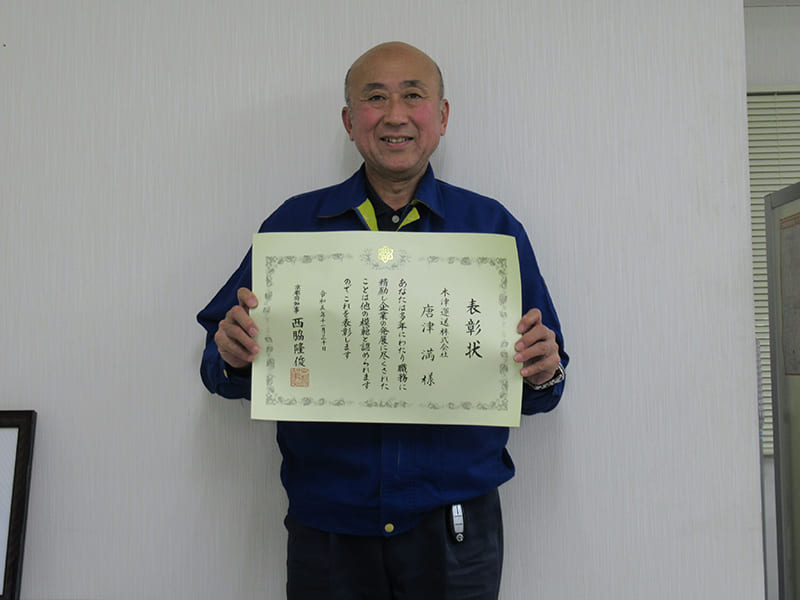 表彰状
木津運送株式会社
唐津 満 様
あなたは多年にわたり職務に
精励し企業の発展に尽くされた
ことは他の模範と認められます
のでこれを表彰します
令和五年十一月三十日
京都府知事 西脇隆俊